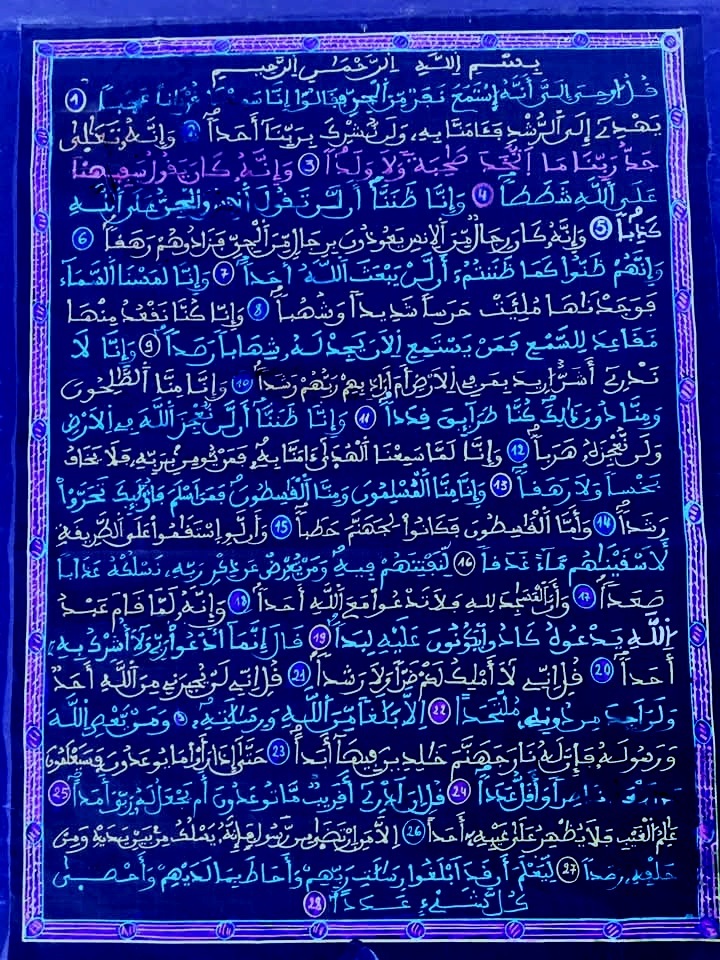 بسم الله الرحمن الرحيم
قل اوحي الي أنه إستمع نفر من الجن فقالوا إنا سمعنا قرءانا عجبا 1
يهدي إلى الرشد فئامنا به، ولن نشرك بربنا أحدا 2 وإنه تعالى
جد ربنا ما اتخذ صحبة ولا ولدا 3 وإنه كان يقول سفيهنا
على الله شططا 4 وإنا ظننا أن لن تقول الإنس والجن على الله
كذبا 5 وإنه كان رجال من الإنس يعوذون برجال من الجن فزادوهم رهقا 6
وإنهم ظنوا كما ظننتم أن لن يبعث الله أحدا 7 وإنا لمسنا السماء
فوجدناها ملئت حرسا شديدا وشهبا 8 وإنا كنا نقعد منها
مقاعد للسمع فمن يستمع الآن يجد له شهابا رصدا 9 وإنا لا
ندري أشر اريد بمن في الارض أم أراد بهم ربهم رشدا 10 وإنا منا الصلحون
ومنا دون ذالك كنا طرايق قددا 11 وإنا ظننا أن لن نعجز الله في الارض
ولن نعجزه هربا 12 وإنا لما سمعنا الهدى ءامنا به فمن يومن بربه فلا يخاف
بخسا ولا رهقا 13 وإنا منا المسلمون ومنا القاسطون فمن اسلم فأولئك تحروا
رشدا 14 وأما القاسطون فكانوا لجهنم حطبا 15 وأن لو إستقموا على الطريقة
لأسقيناهم ماء غدقا 16 لنفتنهم فيه ومن يعرض عن ذكر ربه، نسلكه عذابا
صعدا 17 وأن المسجد لله فلا تدعوا مع الله أحدا 18 وإنه لما قام عبد
الله يدعوه كادوا يكونون عليه لبدا 19 قال إنما أدعوا ربي ولا أشرك به
أحدا 20 قل إني لا أملك لكم ضرا ولا رشدا 21 قل إني لن يجيرني من الله أحد
ولن اجد من دونه، ملتحدا 22 إلا بلغا من الله ورسلته، ومن يعص الله
ورسوله فإن له نار جهنم خلدين فيها أبدا 23 حتى إذا رأوا ما يوعدون فسيعلمون
من ناصرا وأقل عددا 24 قل إن ادري أقريب ما توعدون أم يجعل له ربي أمدا 25
علم الغيب فلا يظهر على غيبه أحدا 26 الا من ارتضى من رسول فإنه يسلك من بين يديه ومن
خلفه، رصدا 27 ليعلم أن قد ابلغوا رسلت ربهم وأحاط بما لديهم وأحصى
كل شيء عددا 28